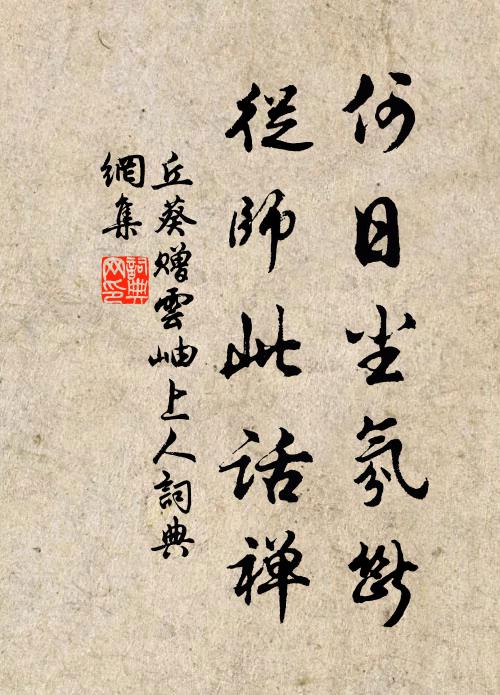 何日尘氛断
從師此话禅
丘葵赠雲岫上人詞典
網集
詞典
网印